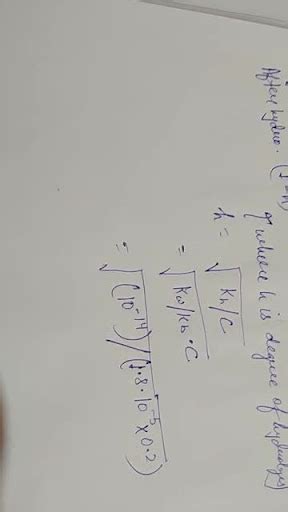 After hydro. (1-h)
{ where h is degree of hydrolysis)
h = √Kh/C
= √Kw/Kb·C
= √(10⁻¹⁴)/(1.8·10⁻⁵×0.2)